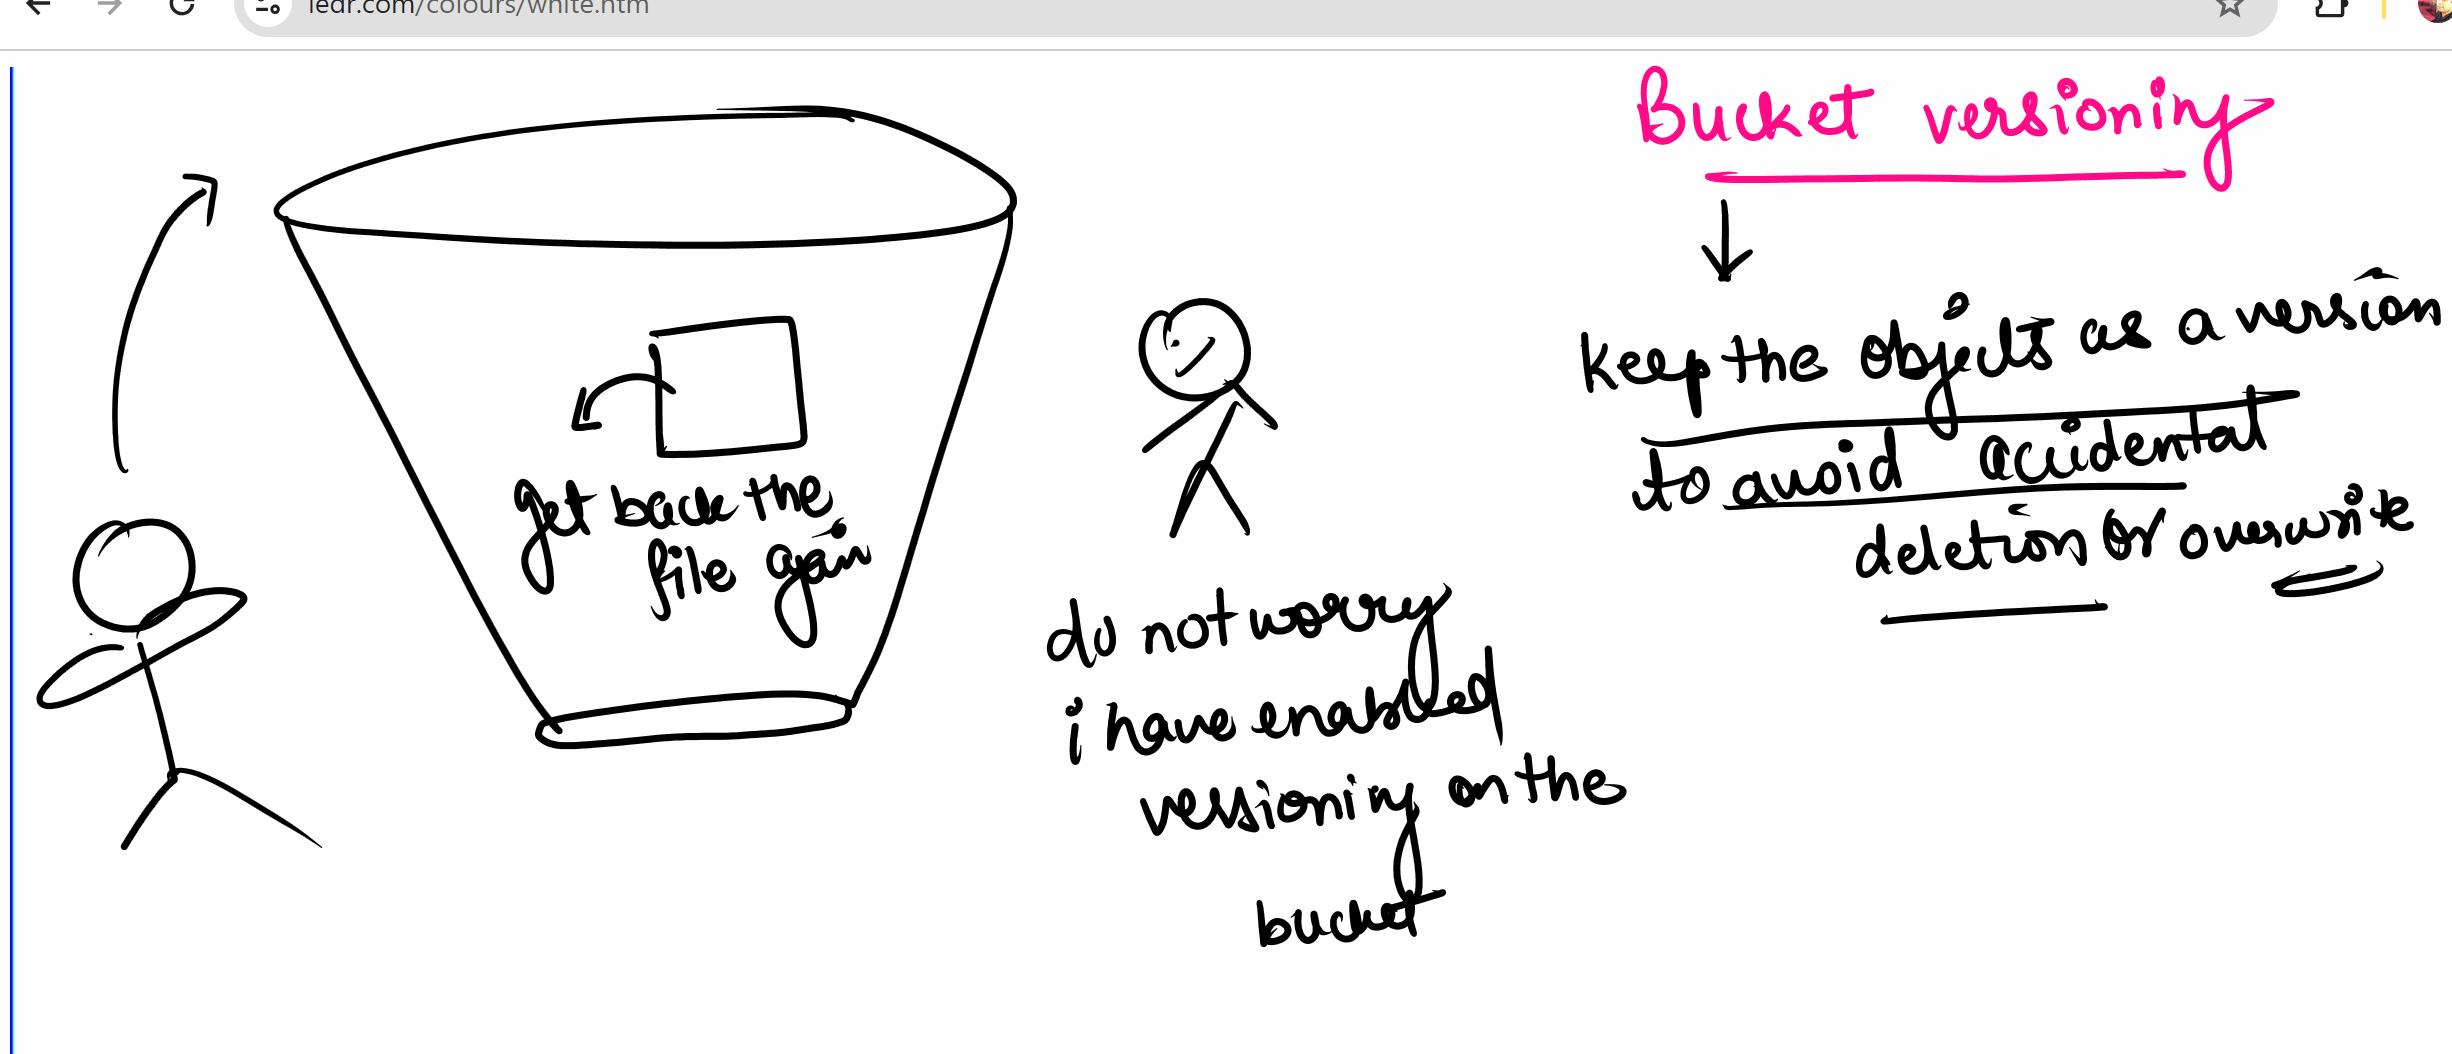 ledr.com/colours/white.htm
Bucket versioning
keep the objects as a version
to avoid acidental
deletion or overwrite
get back the
file gain
do not worry
i have enabled
versioning on the
bucket